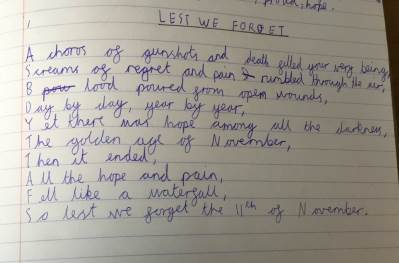 proud, hope.
LEST WE FORGET
A choros of gunshots and death filled your very being,
Screams of regret and pain & rumbled through the air,
B lood poured from open wounds,
Day by day, year by year,
Y et there was hope among all the darkness,
The golden age of November,
Then it ended,
All the hope and pain,
Fell like a waterfall,
So lest we forget the 11th of November.